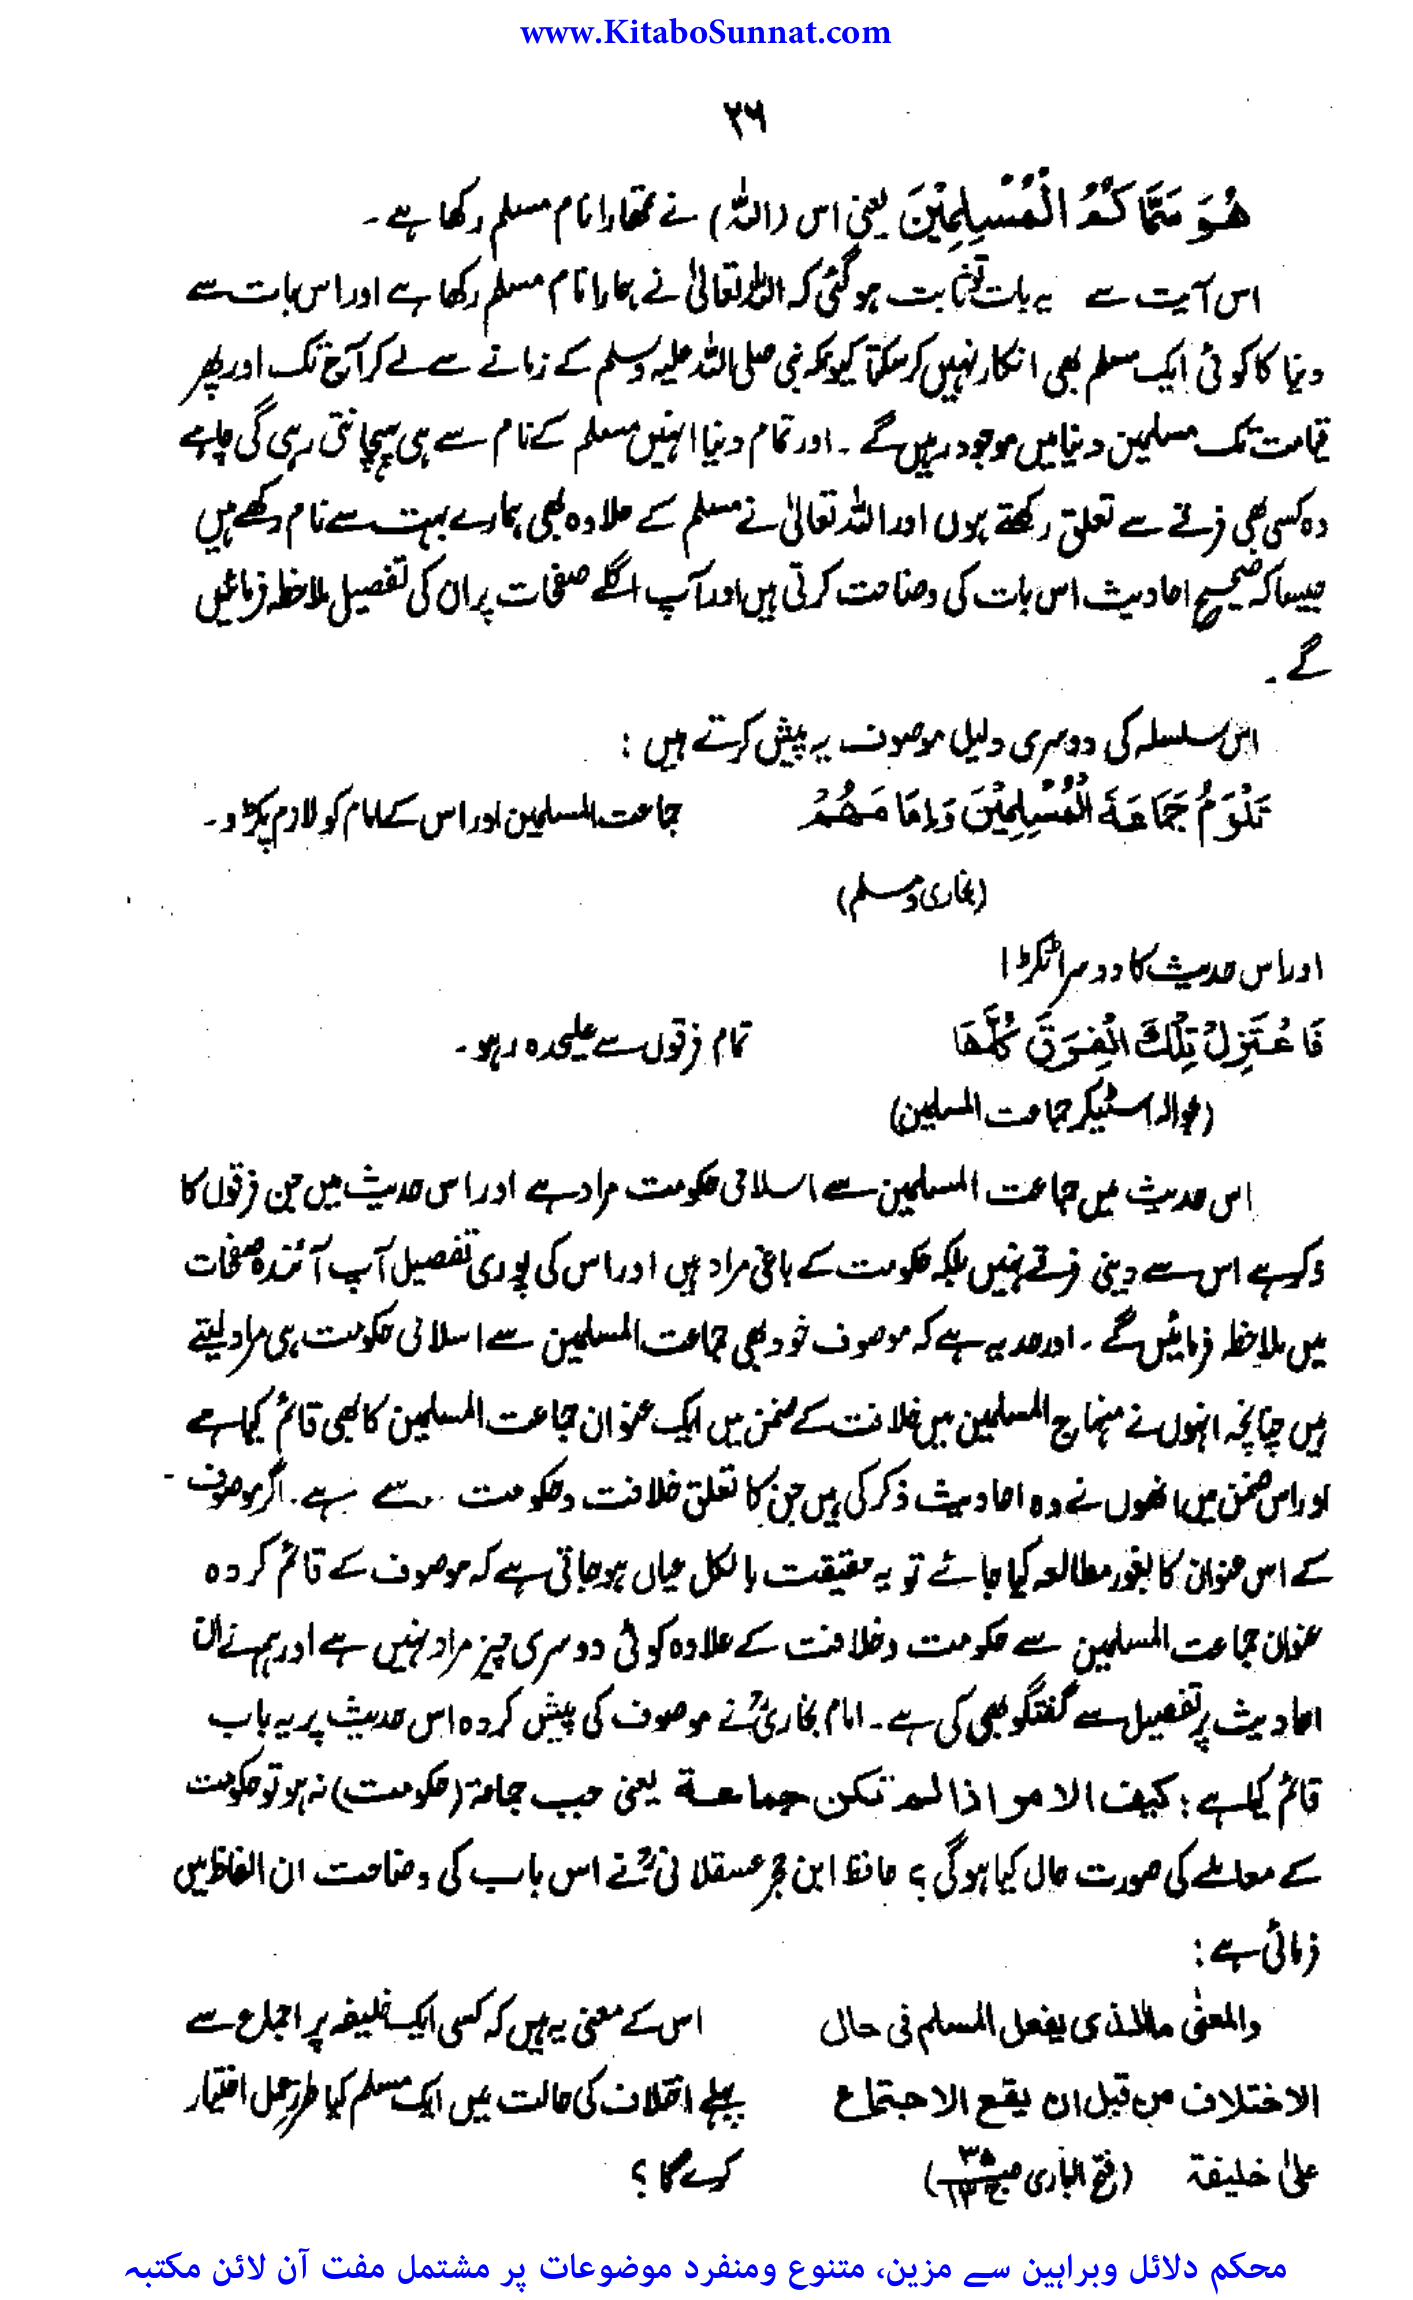 www.KitaboSunnat.com
۲۶
هُوَ سَمَّاكُمُ الْمُسْلِمِيْنَ یعنی اس (اللہ) نے تمھارا نام مسلم رکھا ہے۔
اس آیت سے یہ بات ثابت ہوگئی کہ اللہ تعالیٰ نے ہمارا نام مسلم رکھا ہے اور اس بات سے
دنیا کا کوئی ایک مسلم بھی انکار نہیں کرسکتا کیونکہ نبی صلی اللہ علیہ وسلم کے زمانے سے لے کر آج تک اور پھر
قیامت تک مسلمین دنیا میں موجود رہیں گے۔ اور تمام دنیا انہیں مسلم کے نام سے ہی پہچانتی رہی گی چاہے
وہ کسی بھی فرقے سے تعلق رکھتے ہوں اور اللہ تعالیٰ نے مسلم کے علاوہ بھی ہمارے بہت سے نام رکھے ہیں
جیسا کہ صحیح احادیث اس بات کی وضاحت کرتی ہیں اور آپ اگلے صفحات پر ان کی تفصیل ملاحظہ فرمائیں
گے۔
اس سلسلہ کی دوسری دلیل موصوف یہ پیش کرتے ہیں :
تَلْزَمُ جَمَاعَةَ الْمُسْلِمِيْنَ وَاِمَامَهُمْ جماعت المسلمین اور اس کے امام کو لازم پکڑو۔
(بخاری ومسلم)
اور اس حدیث کا دوسرا ٹکڑا
فَاعْتَزِلْ تِلْكَ الْفِرَقَ كُلَّهَا تمام فرقوں سے علیحدہ رہو۔
(بحوالہ اسٹیکر جماعت المسلمین)
اس حدیث میں جماعت المسلمین سے اسلامی حکومت مراد ہے اور اس حدیث میں جن فرقوں کا
ذکر ہے اس سے دینی فرقے نہیں بلکہ حکومت کے باغی مراد ہیں اور اس کی پوری تفصیل آپ آئندہ صفحات
میں ملاحظہ فرمائیں گے۔ اور حد یہ ہے کہ موصوف خود بھی جماعت المسلمین سے اسلامی حکومت ہی مراد لیتے
ہیں چنانچہ انہوں نے منہاج المسلمین میں خلافت کے ضمن میں ایک عنوان جماعت المسلمین کا بھی قائم کیا ہے
اور اس ضمن میں انھوں نے وہ احادیث ذکر کی ہیں جن کا تعلق خلافت وحکومت سے ہے۔ اگر موصوف
کے اس عنوان کا بغور مطالعہ کیا جائے تو یہ حقیقت بالکل عیاں ہوجاتی ہے کہ موصوف کے قائم کردہ
عنوان جماعت المسلمین سے حکومت وخلافت کے علاوہ کوئی دوسری چیز مراد نہیں ہے اور ہم نے ان
احادیث پر تفصیل سے گفتگو بھی کی ہے۔ امام بخاریؒ نے موصوف کی پیش کردہ اس حدیث پر یہ باب
قائم کیا ہے : کیف الامر اذا لم تکن جماعۃ یعنی جب جماعۃ (حکومت) نہ ہو تو حکومت
کے معاملے کی صورت حال کیا ہوگی ؟ حافظ ابن حجر عسقلانیؒ نے اس باب کی وضاحت ان الفاظ میں
فرمائی ہے :
والمعنیٰ ماالذی یفعل المسلم فی حال اس کے معنی یہ ہیں کہ کسی ایک خلیفہ پر اجماع سے
الاختلاف من قبل ان یقع الاجتماع پہلے اختلاف کی حالت میں ایک مسلم کیا طرز عمل اختیار
علیٰ خلیفۃ (فتح الباری ص۳۵ ج۱۳) کرے گا ؟
محکم دلائل وبراہین سے مزین، متنوع ومنفرد موضوعات پر مشتمل مفت آن لائن مکتبہ